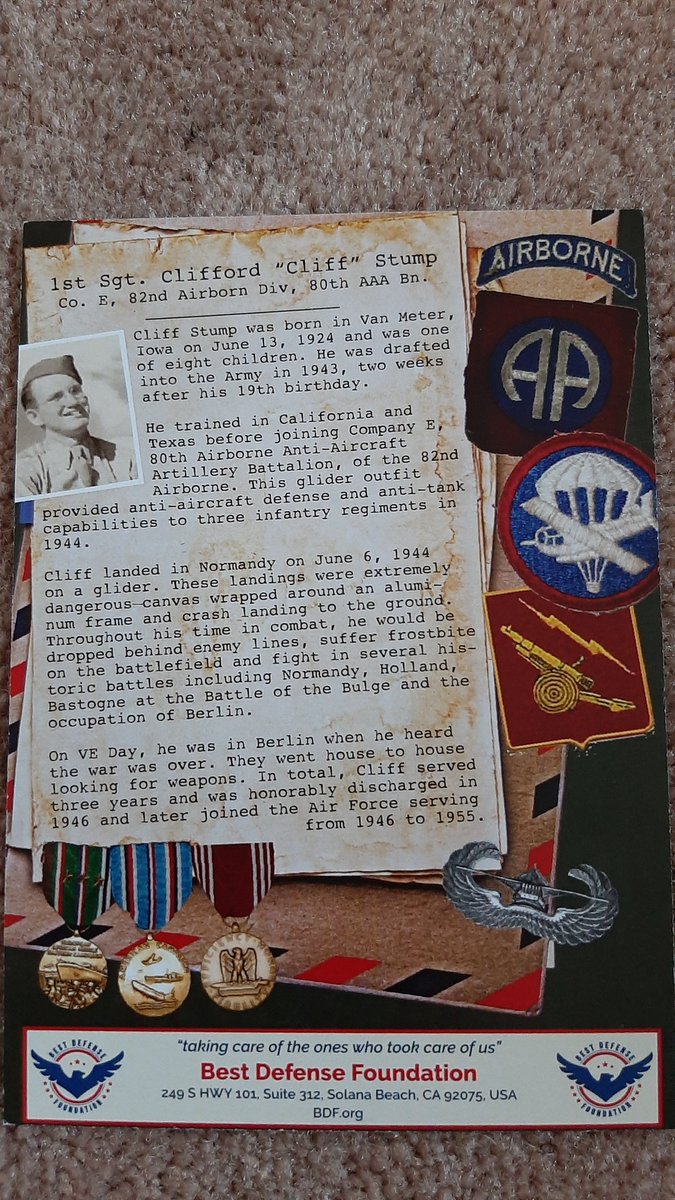 1st Sgt. Clifford "Cliff" Stump
Co. E, 82nd Airborn Div, 80th AAA Bn.
Cliff Stump was born in Van Meter,
Iowa on June 13, 1924 and was one
of eight children. He was drafted
into the Army in 1943, two weeks
after his 19th birthday.
He trained in California and
Texas before joining Company E,
80th Airborne Anti-Aircraft
Artillery Battalion, of the 82nd
Airborne. This glider outfit
provided anti-aircraft defense and anti-tank
capabilities to three infantry regiments in
1944.
Cliff landed in Normandy on June 6, 1944
on a glider. These landings were extremely
dangerous—canvas wrapped around an alumi-
num frame and crash landing to the ground.
Throughout his time in combat, he would be
dropped behind enemy lines, suffer frostbite
on the battlefield and fight in several his-
toric battles including Normandy, Holland,
Bastogne at the Battle of the Bulge and the
occupation of Berlin.
On VE Day, he was in Berlin when he heard
the war was over. They went house to house
looking for weapons. In total, Cliff served
three years and was honorably discharged in
1946 and later joined the Air Force serving
from 1946 to 1955.
AIRBORNE
AA
BEST DEFENSE
FOUNDATION
"taking care of the ones who took care of us"
Best Defense Foundation
249 S HWY 101, Suite 312, Solana Beach, CA 92075, USA
BDF.org
BEST DEFENSE
FOUNDATION